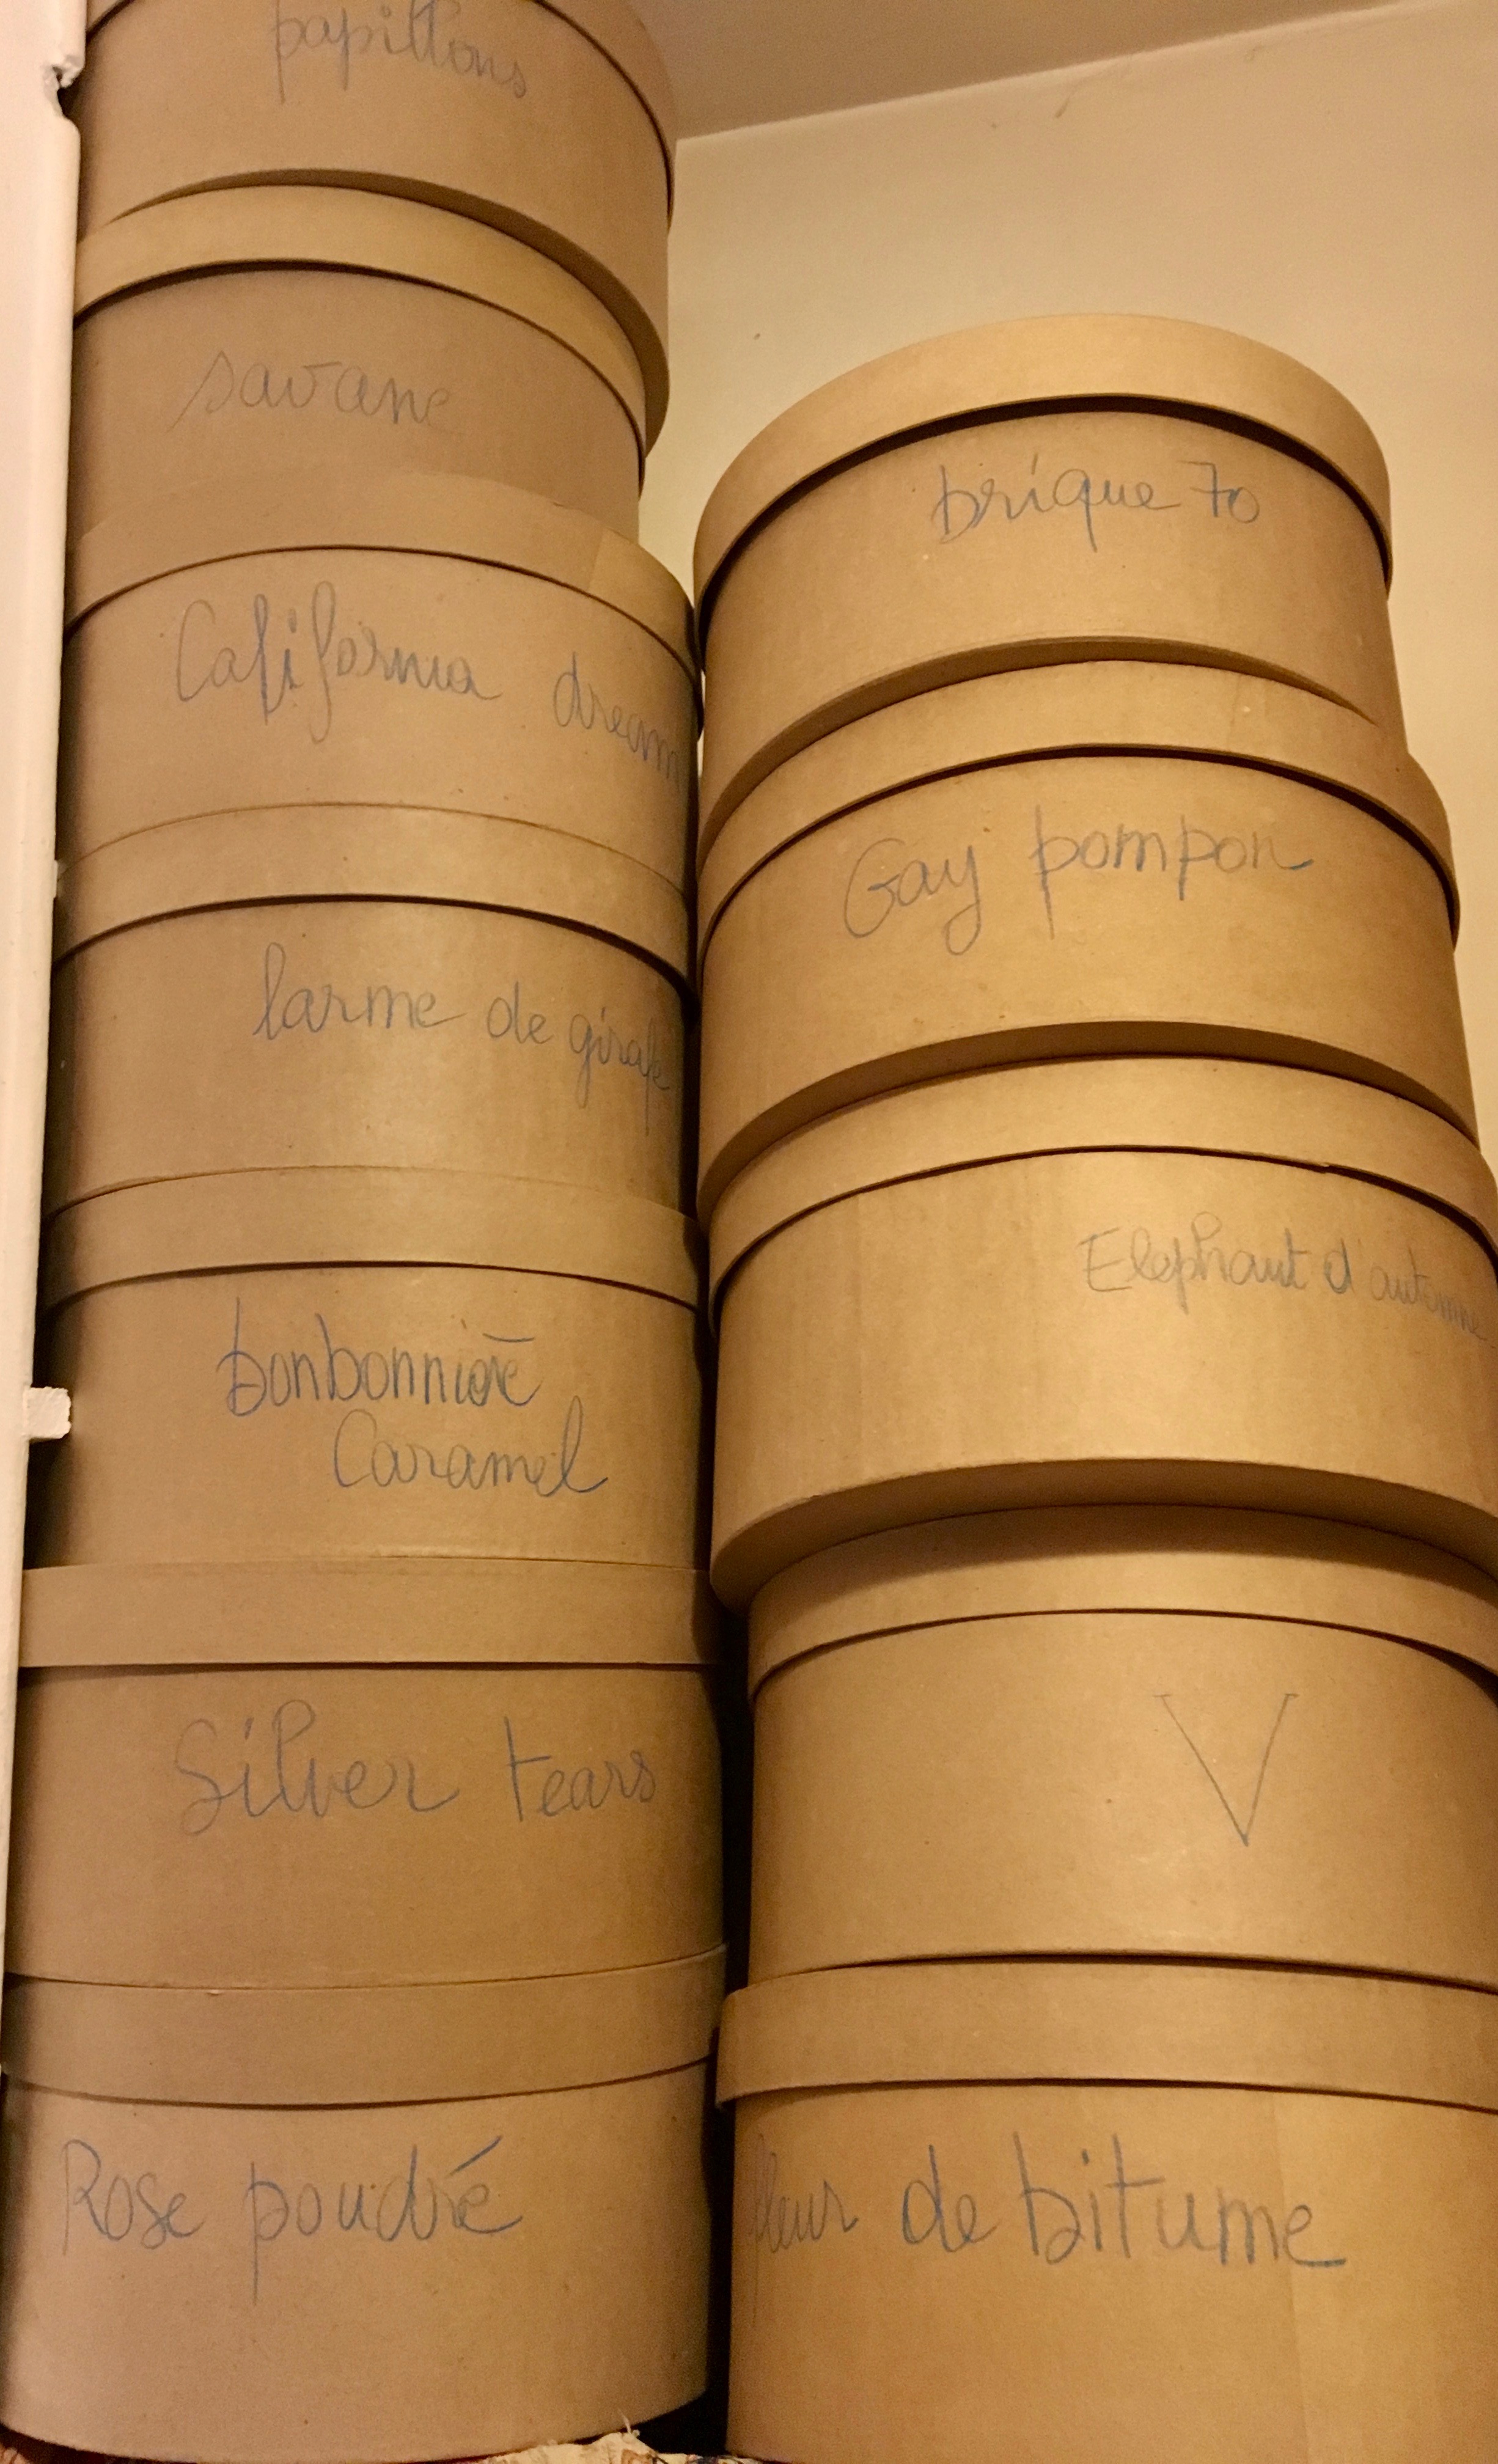 papillons
savane
California dream
larme de girafe
bonbonnière
Caramel
Silver tears
Rose poudré
brique 70
Gay pompon
Elephant d'automne
V
fleur de bitume